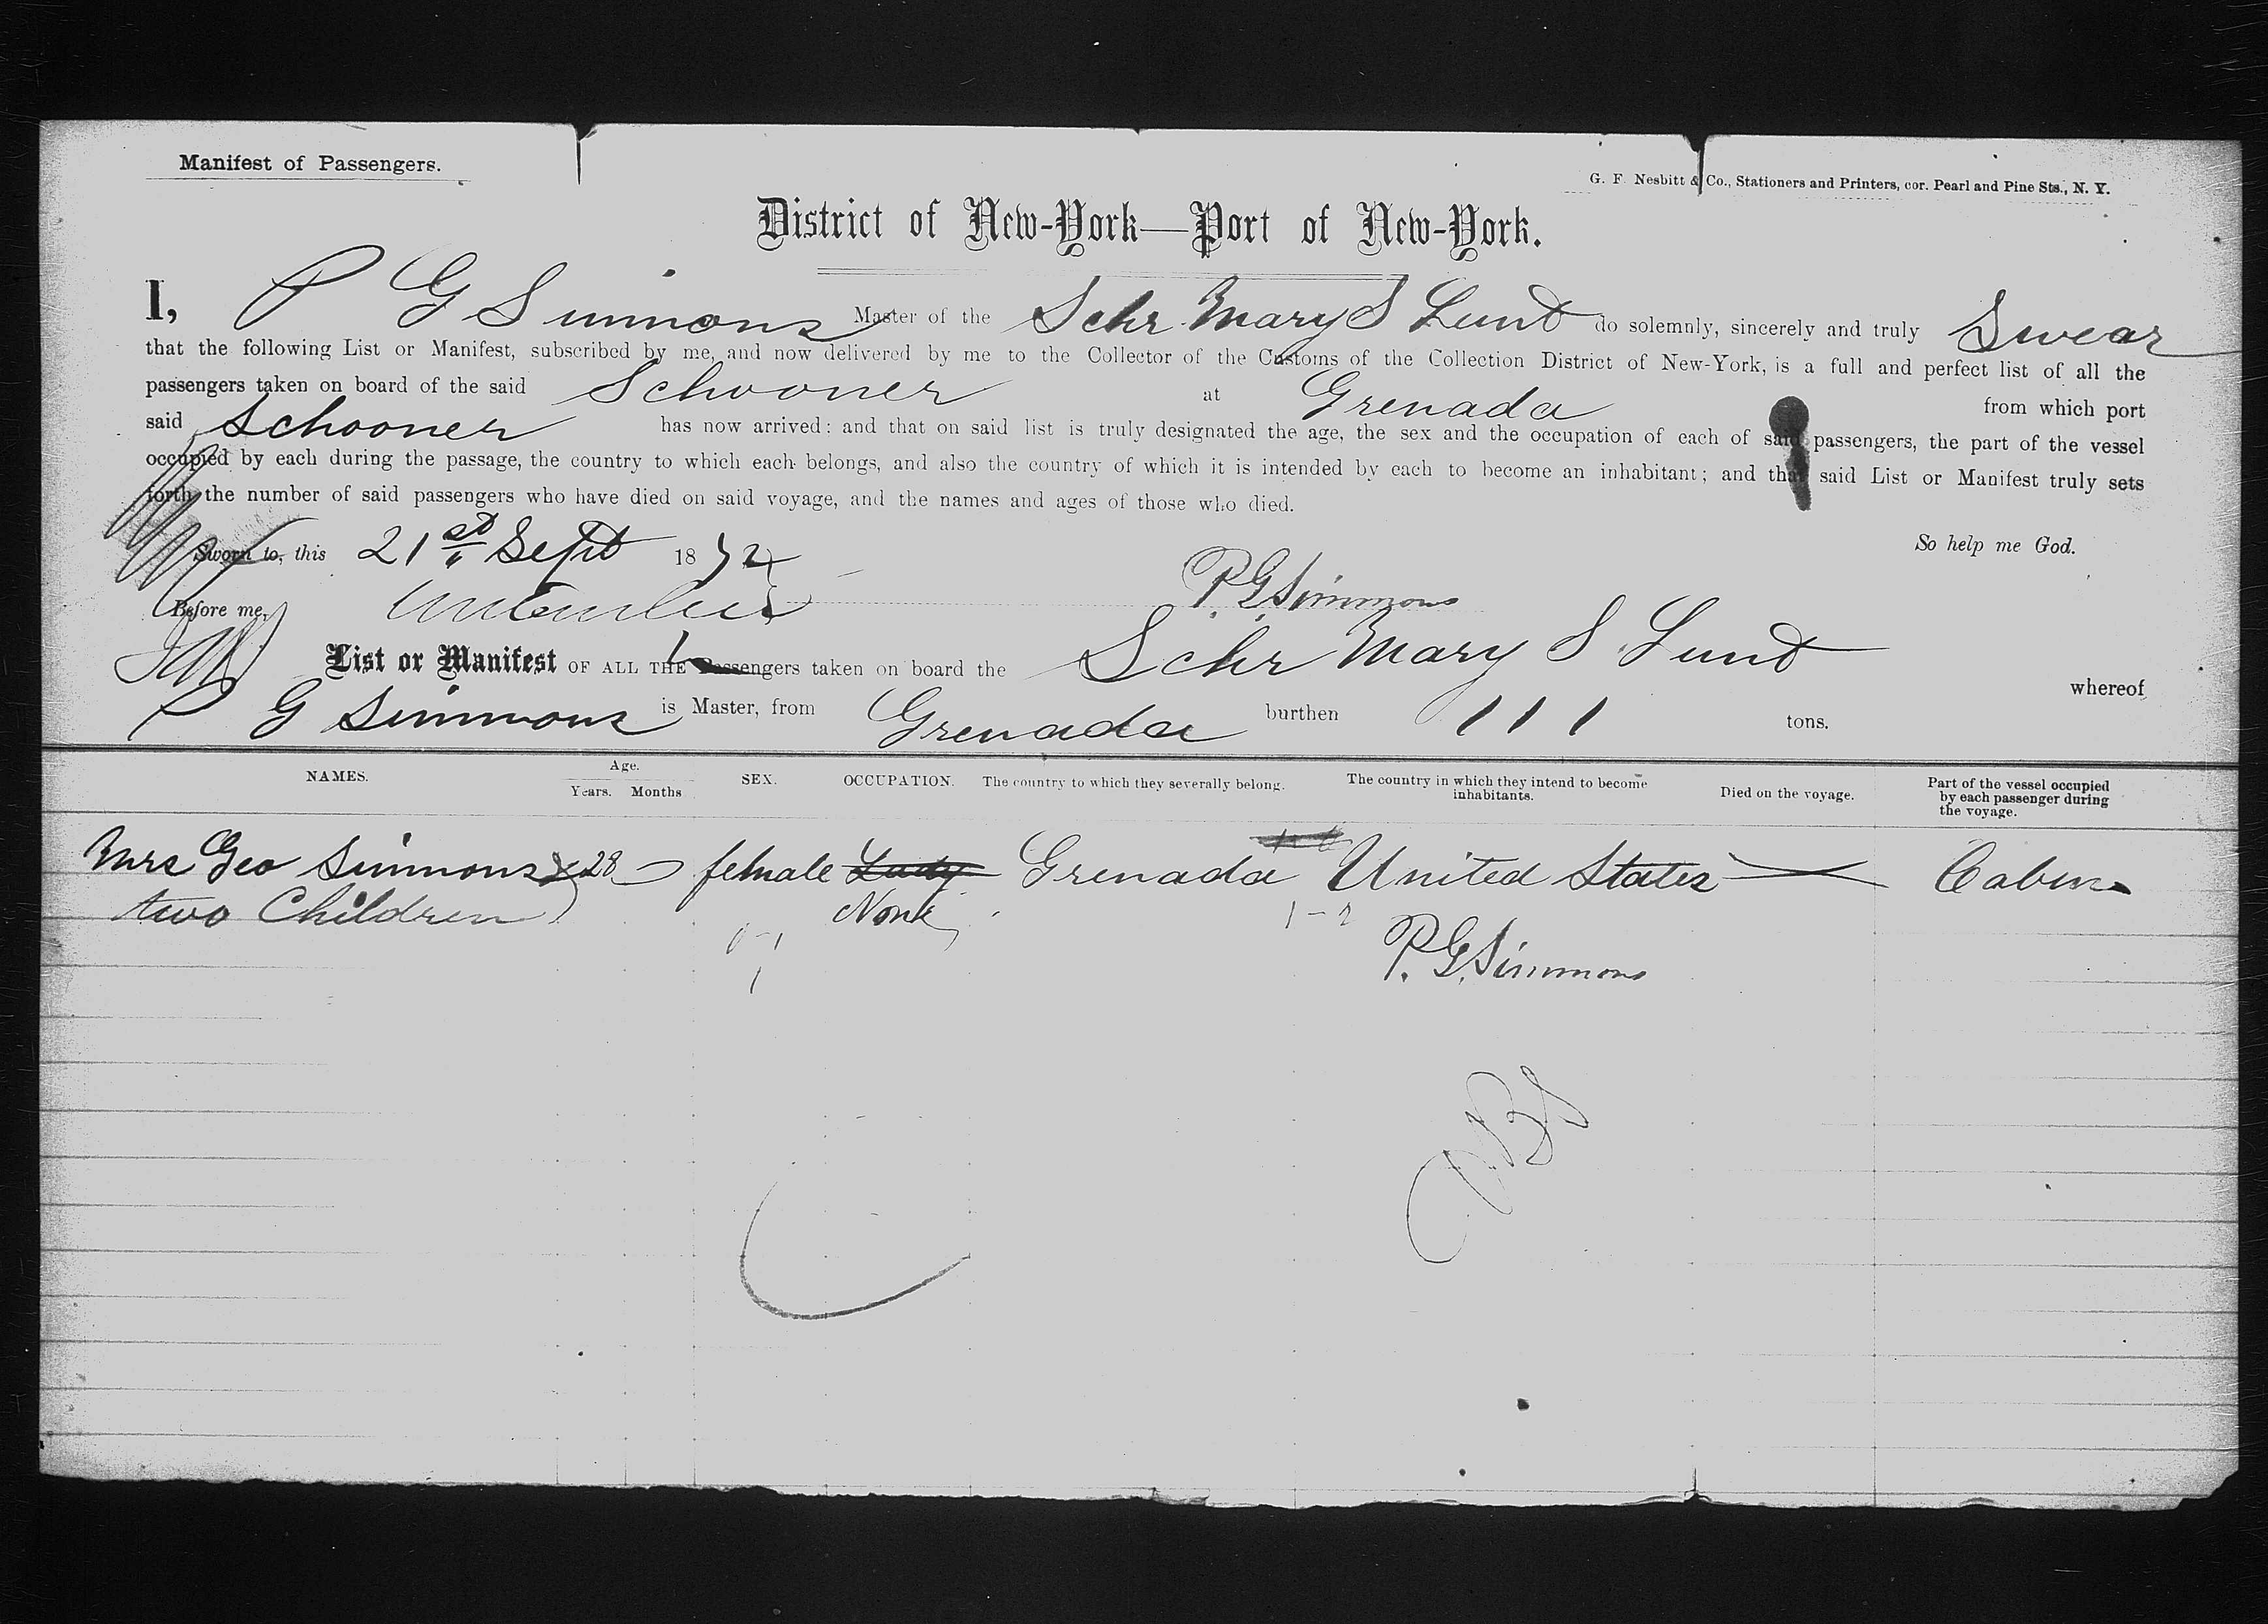 Manifest of Passengers.
G. F. Nesbitt & Co., Stationers and Printers, cor. Pearl and Pine Sts., N. Y.
District of New-York—Port of New-York.
I, P G Simmons Master of the Schr Mary S Lunt do solemnly, sincerely and truly Swear
that the following List or Manifest, subscribed by me, and now delivered by me to the Collector of the Customs of the Collection District of New-York, is a full and perfect list of all the
passengers taken on board of the said Schooner at Grenada from which port
said Schooner has now arrived: and that on said list is truly designated the age, the sex and the occupation of each of said passengers, the part of the vessel
occupied by each during the passage, the country to which each belongs, and also the country of which it is intended by each to become an inhabitant; and that said List or Manifest truly sets
forth the number of said passengers who have died on said voyage, and the names and ages of those who died.
Sworn to, this 21st Sept 1872 So help me God.
Before me, P. G. Simmons
List or Manifest OF ALL THE Passengers taken on board the Schr Mary S Lunt whereof
P G Simmons is Master, from Grenada burthen 111 tons.
NAMES. Age. Years. Months SEX. OCCUPATION. The country to which they severally belong. The country in which they intend to become inhabitants. Died on the voyage. Part of the vessel occupied by each passenger during the voyage.
Mrs Geo Simmons & 28 female Lady Grenada United States Cabin
two Children None
P. G. Simmons